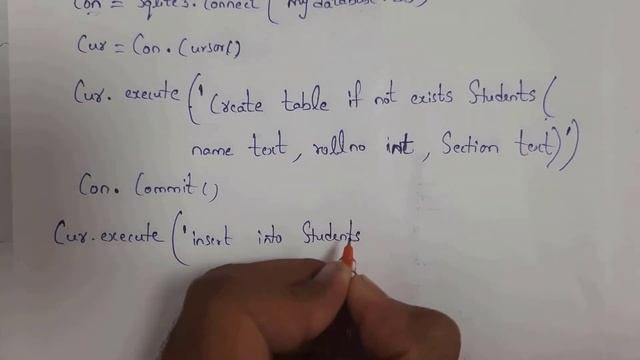 Con = sqlite3.Connect(
Cur = Con.Cursor()
Cur. execute('Create table if not exists Students(
name text, rollno int, Section text)')
Con. Commit()
Cur.execute('insert into Students